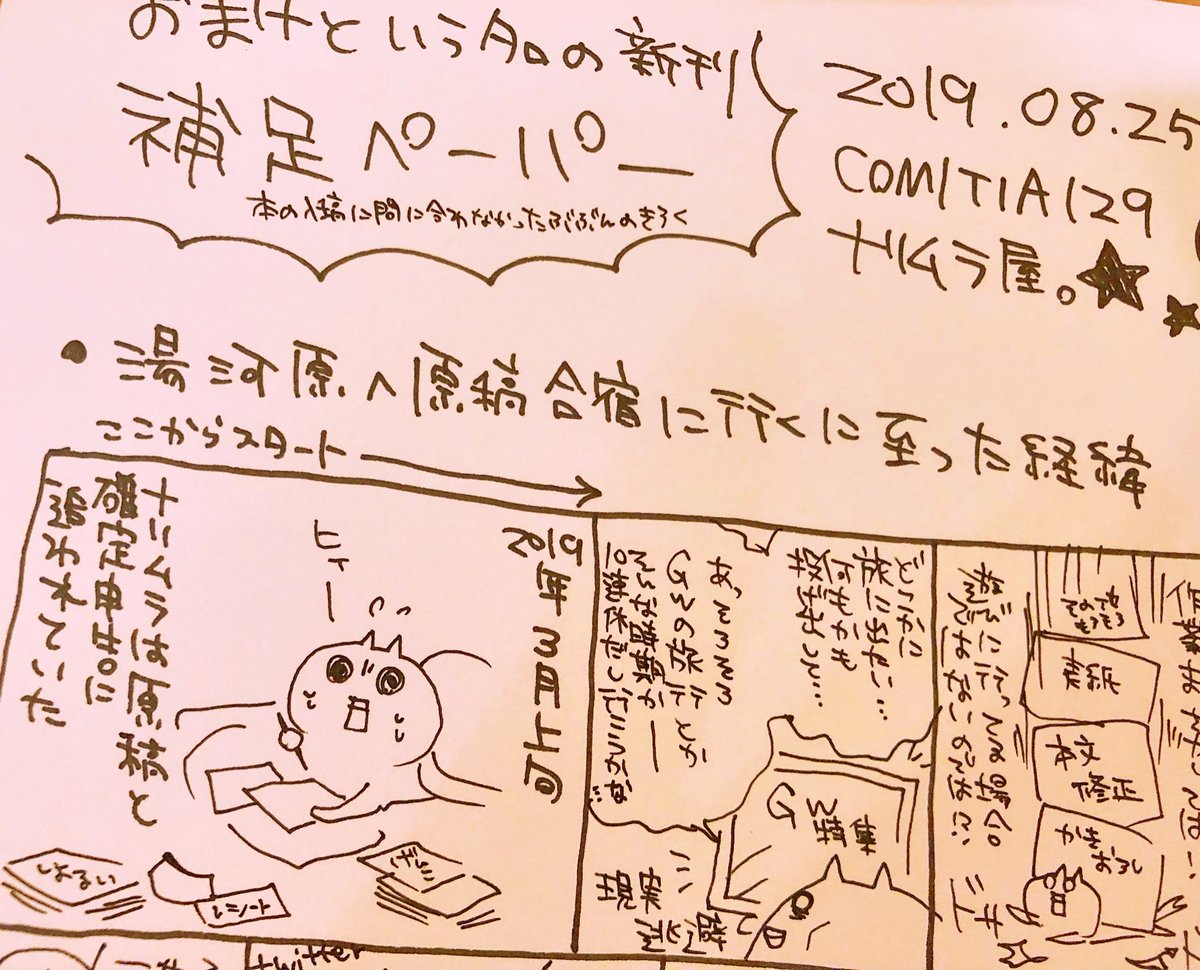 おまけという名の新刊
補足ペーパー
本の入稿に間に合わなかったぶぶんのきろく
2019.08.25
COMITIA129
ナリムラ屋。
• 湯河原へ原稿合宿に行くに至った経緯
ここからスタート
2019年
3月上旬
ヒィー
ナリムラは原稿と
確定申告に
追われていた
しょるい
レシート
げんこ
どっかに
旅に出たい…
何もかも
投げ出して…
あ、そろそろ
GWの旅行とか
そんな時期かー
10連休だし行こうかな…
GW
特集
現実
逃避
表紙
本文
修正
かき
おろし
遊びに行ってる場合
ではないのでは?!
twitter